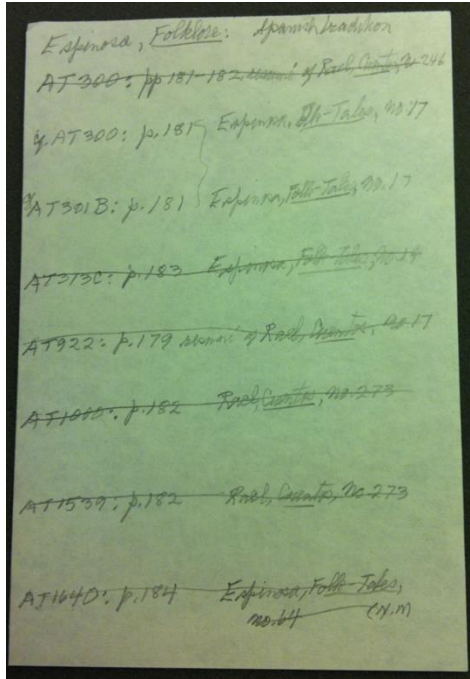 Espinosa, Folklore: Spanish tradition
AT300: pp 181-182, resumé of Rael, Cuentos, no 246
AT300: p. 181 Espinosa, Folk-Tales, no. 17
AT301B: p. 181 Espinosa, Folk-Tales, no. 17
AT313C: p. 183 Espinosa, Folk-Tales, no. 14
AT922: p. 179 resumé of Rael, Cuentos, no. 17
p. 182 Rael, Cuentos, no. 273
AT1539: p. 182 Rael, Cuentos, no 273
AT1640: p. 184 Espinosa, Folk-Tales,
no. 64 (N.M)